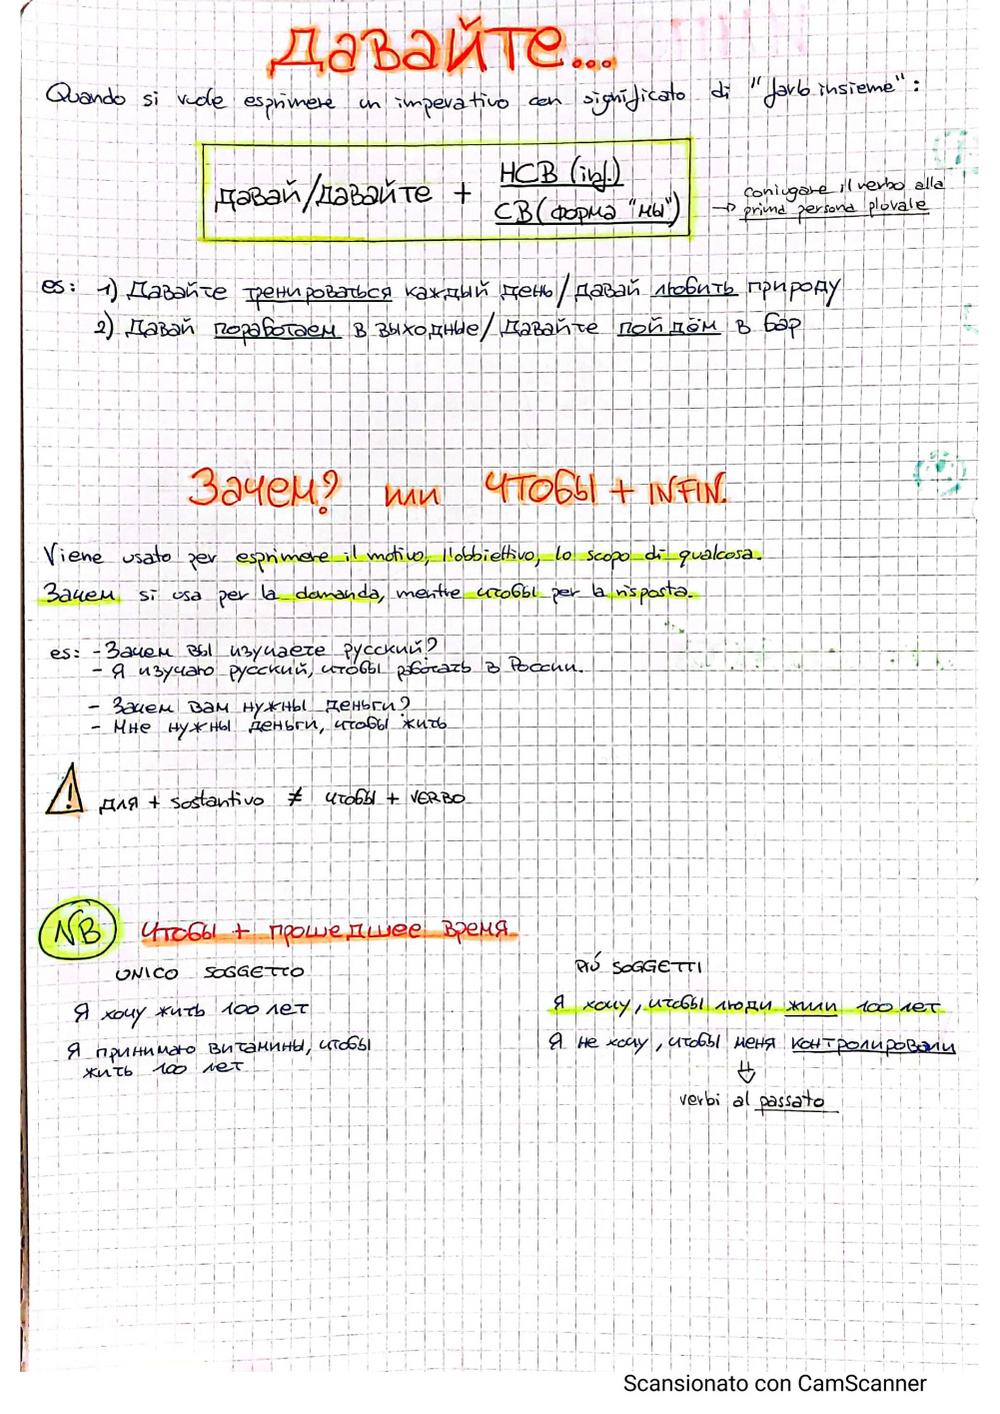 Давайте...
Quando si vuole esprimere un imperativo con significato di "farlo insieme":
давай/давайте + НСВ (inf.)
СВ (форма "мы")
→ coniugare il verbo alla
prima persona plurale
es: 1) Давайте тренироваться каждый день/давай любить природу
2) Давай поработаем в выходные/Давайте пойдём в бар
Зачем? или чтобы + INFIN.
Viene usato per esprimere il motivo, l'obbiettivo, lo scopo di qualcosa.
Зачем si usa per la domanda, mentre чтобы per la risposta.
es: - Зачем вы изучаете русский?
- Я изучаю русский, чтобы работать в России.
- Зачем вам нужны деньги?
- Мне нужны деньги, чтобы жить
! для + sostantivo ≠ чтобы + VERBO
NB чтобы + прошедшее время
UNICO SOGGETTO
Я хочу жить 100 лет
Я принимаю витамины, чтобы
жить 100 лет
PIÙ SOGGETTI
Я хочу, чтобы люди жили 100 лет
Я не хочу, чтобы меня контролировали
verbi al passato
Scansionato con CamScanner